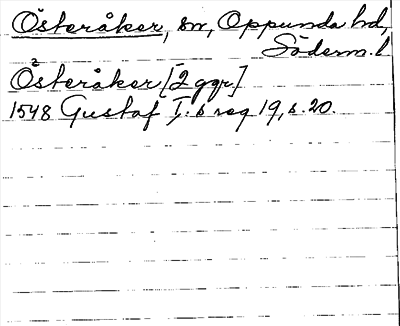 Österåker, sn, Oppunda hd,
Söderm. l
Österåker [2 ggr.]
1548 Gustaf I:s reg 19, s. 20.